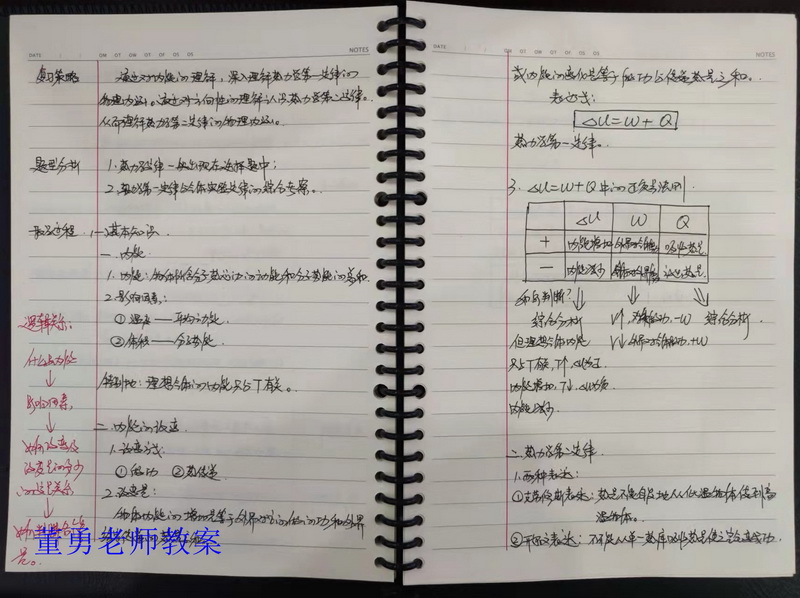 DATE
NOTES
复习策略 通过对内能的理解,深入理解热力学第一定律的
物理意义。通过对方向性的理解认识热力学第二定律。
从而理解热力学第二定律的物理意义。
题型分析 1.热力学定律一般出现在选择题中;
2.热力学第一定律与气体实验定律的综合考察。
教学过程 (一)基本知识
一.内能
1.内能:物体所含分子热运动的动能和分子势能的总和
2.影响因素:
①温度——平均动能
②体积——分子势能
特别地:理想气体的内能只与T有关。
二.内能的改变
1.改变方式
①做功 ②热传递
2.改变量:
物体内能的增加量等于外界对物体做的功和外界
逻辑关系:
什么是内能
↓
影响因素
↓
如何改变及
改变量的多少
的定量关系
↓
量。
董勇老师教案
DATE
NOTES
或内能的变化量等于做功与传递热量之和。
表达式:
ΔU=W+Q
热力学第一定律。
3.ΔU=W+Q中的正负号法则
ΔU W Q
+ 内能增加 外界对气体 吸收热量
— 内能减少 气体对外界 放出热量
如何判断?
综合分析 V↑,对外做功,-W 综合分析
但理想气体内能 V↓外界对气体做功,+W
只与T有关,T↑,ΔU为正
内能增加,T↓,ΔU为负
内能减少.
二.热力学第二定律
1.两种表达:
①克劳修斯表达:热量不能自发地从低温物体传到高
温物体。
②开尔文表达:不可能从单一热库吸收热量使之完全变成功.